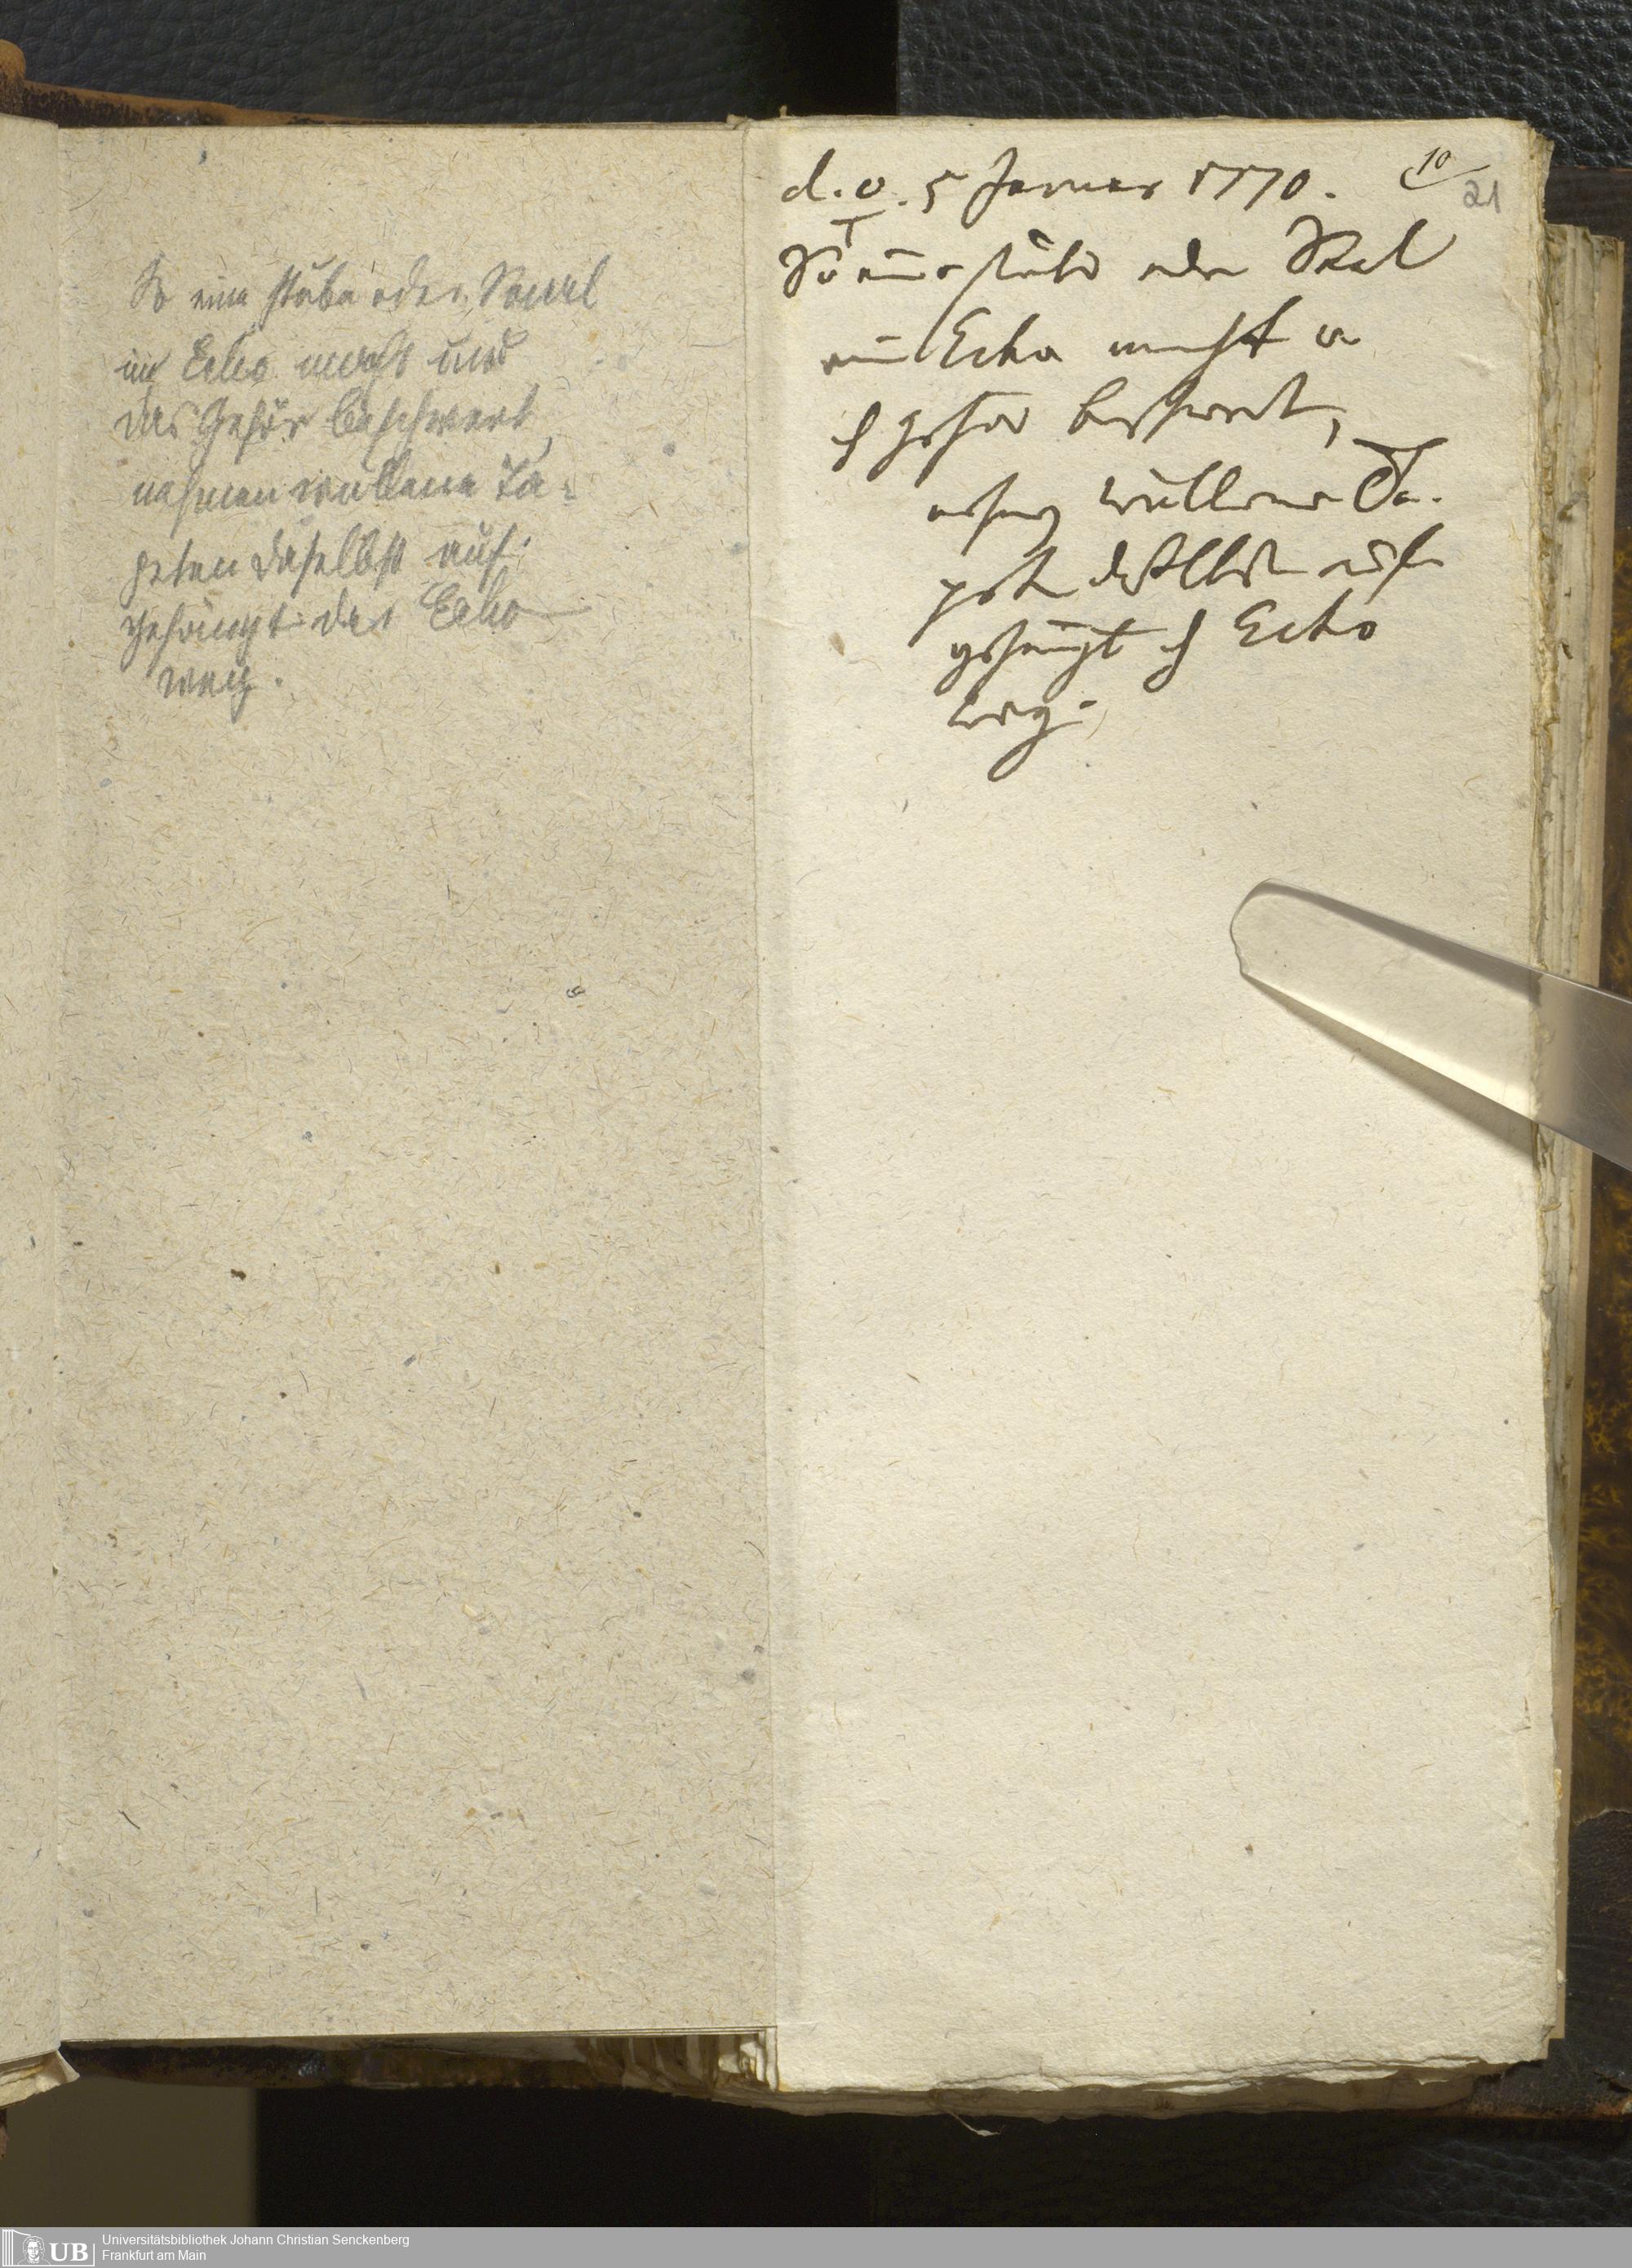 So eine stube oder Saal
ein Echo macht und
das Gehör beschwert,
nehmen wullene Ta-
peten daselbst auf-
gehängt das Echo
weg.
d. 5 Januar 1770.
10
21
So eine stube oder Saal
ein Echo macht u
gehör beschwert,
nehmen wullene Ta-
peten daselbst auf
gehängt Echo
weg.
UB Universitätsbibliothek Johann Christian Senckenberg
Frankfurt am Main